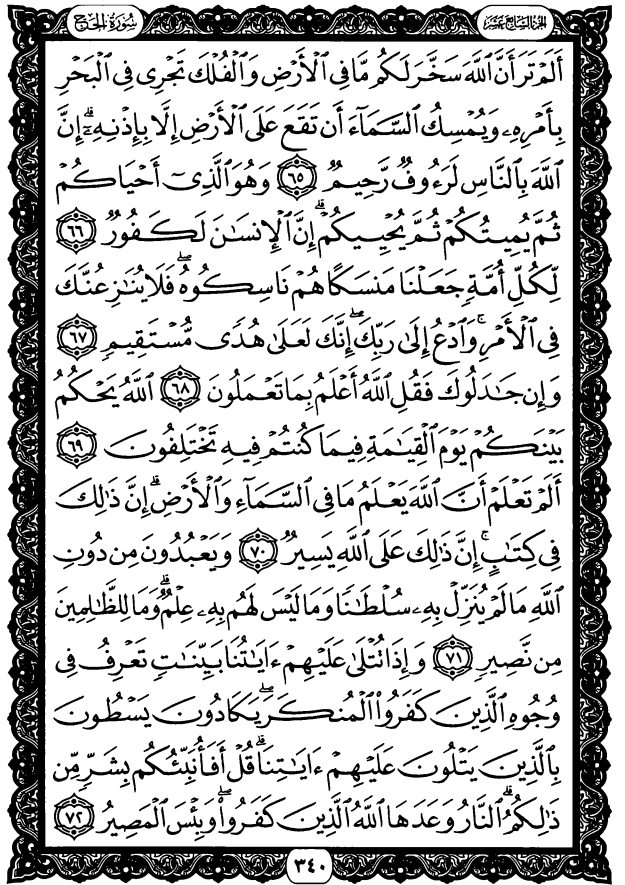 الجزء السابع عشر
سورة الحج
أَلَمْ تَرَ أَنَّ ٱللَّهَ سَخَّرَ لَكُم مَّا فِى ٱلْأَرْضِ وَٱلْفُلْكَ تَجْرِى فِى ٱلْبَحْرِ
بِأَمْرِهِۦ وَيُمْسِكُ ٱلسَّمَآءَ أَن تَقَعَ عَلَى ٱلْأَرْضِ إِلَّا بِإِذْنِهِۦٓ ۗ إِنَّ
ٱللَّهَ بِٱلنَّاسِ لَرَءُوفٌ رَّحِيمٌ ٦٥ وَهُوَ ٱلَّذِىٓ أَحْيَاكُمْ
ثُمَّ يُمِيتُكُمْ ثُمَّ يُحْيِيكُمْ ۗ إِنَّ ٱلْإِنسَٰنَ لَكَفُورٌ ٦٦
لِّكُلِّ أُمَّةٍ جَعَلْنَا مَنسَكًا هُمْ نَاسِكُوهُ ۖ فَلَا يُنَٰزِعُنَّكَ
فِى ٱلْأَمْرِ ۚ وَٱدْعُ إِلَىٰ رَبِّكَ ۖ إِنَّكَ لَعَلَىٰ هُدًى مُّسْتَقِيمٍ ٦٧
وَإِن جَٰدَلُوكَ فَقُلِ ٱللَّهُ أَعْلَمُ بِمَا تَعْمَلُونَ ٦٨ ٱللَّهُ يَحْكُمُ
بَيْنَكُمْ يَوْمَ ٱلْقِيَٰمَةِ فِيمَا كُنتُمْ فِيهِ تَخْتَلِفُونَ ٦٩
أَلَمْ تَعْلَمْ أَنَّ ٱللَّهَ يَعْلَمُ مَا فِى ٱلسَّمَآءِ وَٱلْأَرْضِ ۗ إِنَّ ذَٰلِكَ
فِى كِتَٰبٍ ۚ إِنَّ ذَٰلِكَ عَلَى ٱللَّهِ يَسِيرٌ ٧٠ وَيَعْبُدُونَ مِن دُونِ
ٱللَّهِ مَا لَمْ يُنَزِّلْ بِهِۦ سُلْطَٰنًا وَمَا لَيْسَ لَهُم بِهِۦ عِلْمٌ ۗ وَمَا لِلظَّٰلِمِينَ
مِن نَّصِيرٍ ٧١ وَإِذَا تُتْلَىٰ عَلَيْهِمْ ءَايَٰتُنَا بَيِّنَٰتٍ تَعْرِفُ فِى
وُجُوهِ ٱلَّذِينَ كَفَرُوا۟ ٱلْمُنكَرَ ۖ يَكَادُونَ يَسْطُونَ
بِٱلَّذِينَ يَتْلُونَ عَلَيْهِمْ ءَايَٰتِنَا ۗ قُلْ أَفَأُنَبِّئُكُم بِشَرٍّ مِّن
ذَٰلِكُمُ ۗ ٱلنَّارُ وَعَدَهَا ٱللَّهُ ٱلَّذِينَ كَفَرُوا۟ ۖ وَبِئْسَ ٱلْمَصِيرُ ٧٢
٣٤٠